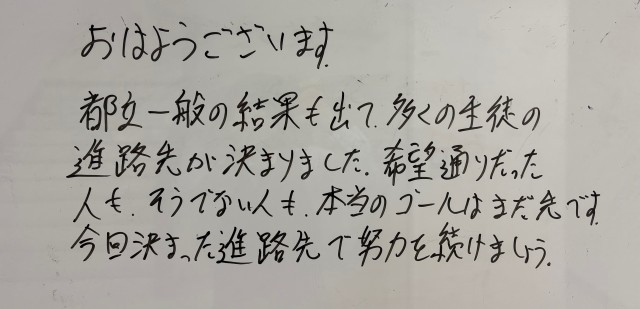 おはようございます.
都立一般の結果も出て、多くの生徒の
進路先が決まりました。希望通りだった
人も、そうでない人も、本当のゴールはまだ先です.
今回決まった進路先で努力を続けましょう.